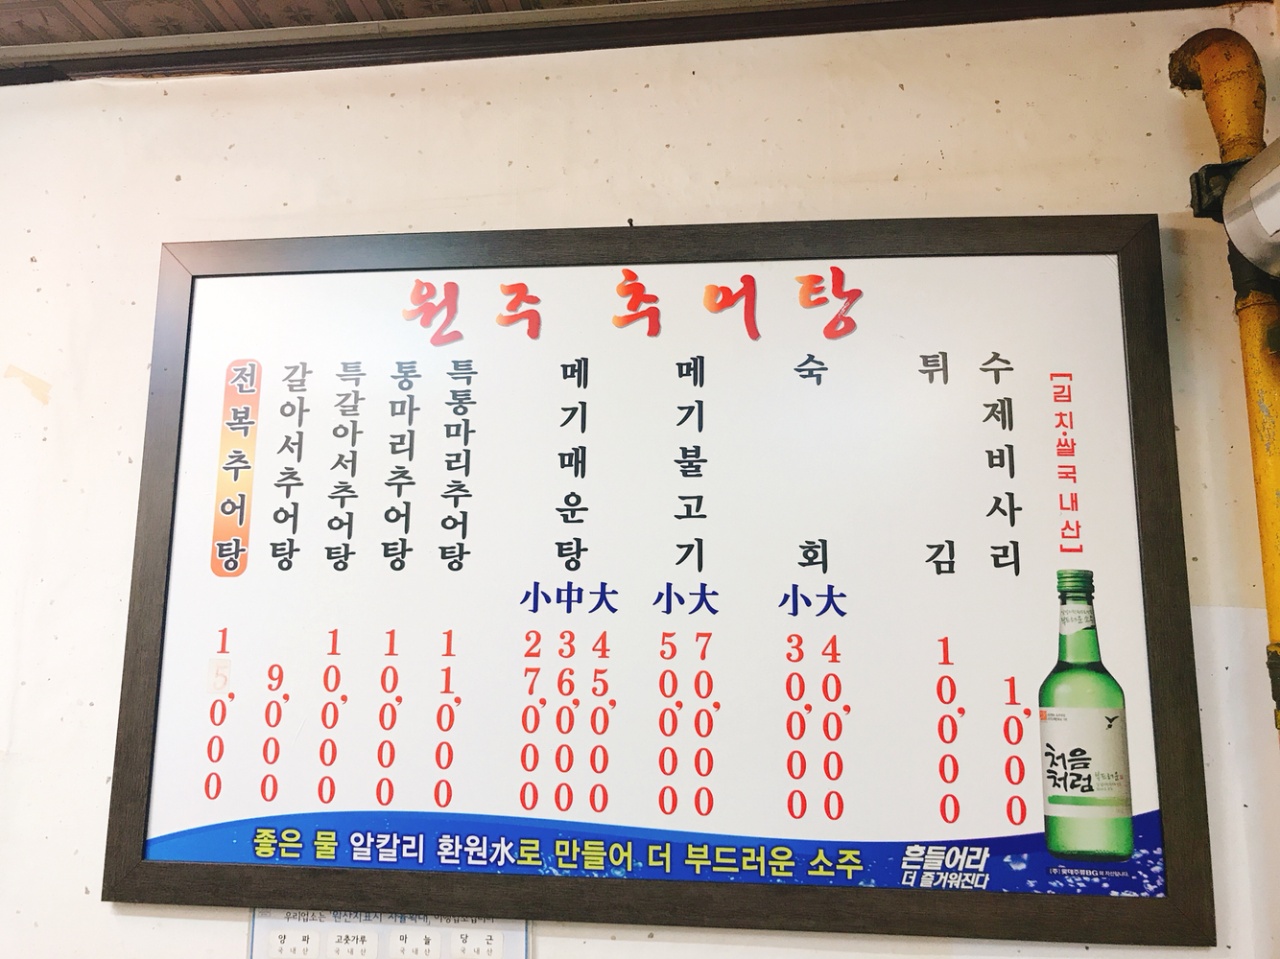 원주 추어탕
전복추어탕
15,000
갈아서추어탕
9,000
특갈아서추어탕
10,000
통마리추어탕
10,000
특통마리추어탕
11,000
메기매운탕
小 27,000
中 36,000
大 45,000
메기불고기
小 50,000
大 70,000
숙회
小 30,000
大 40,000
튀김
10,000
수제비사리
1,000
[김치·쌀국내산]
처음
처럼
좋은 물 알칼리 환원水로 만들어 더 부드러운 소주
흔들어라
더 즐거워진다
양파 고춧가루 마늘 당근
국내산 국내산 국내산 국내산